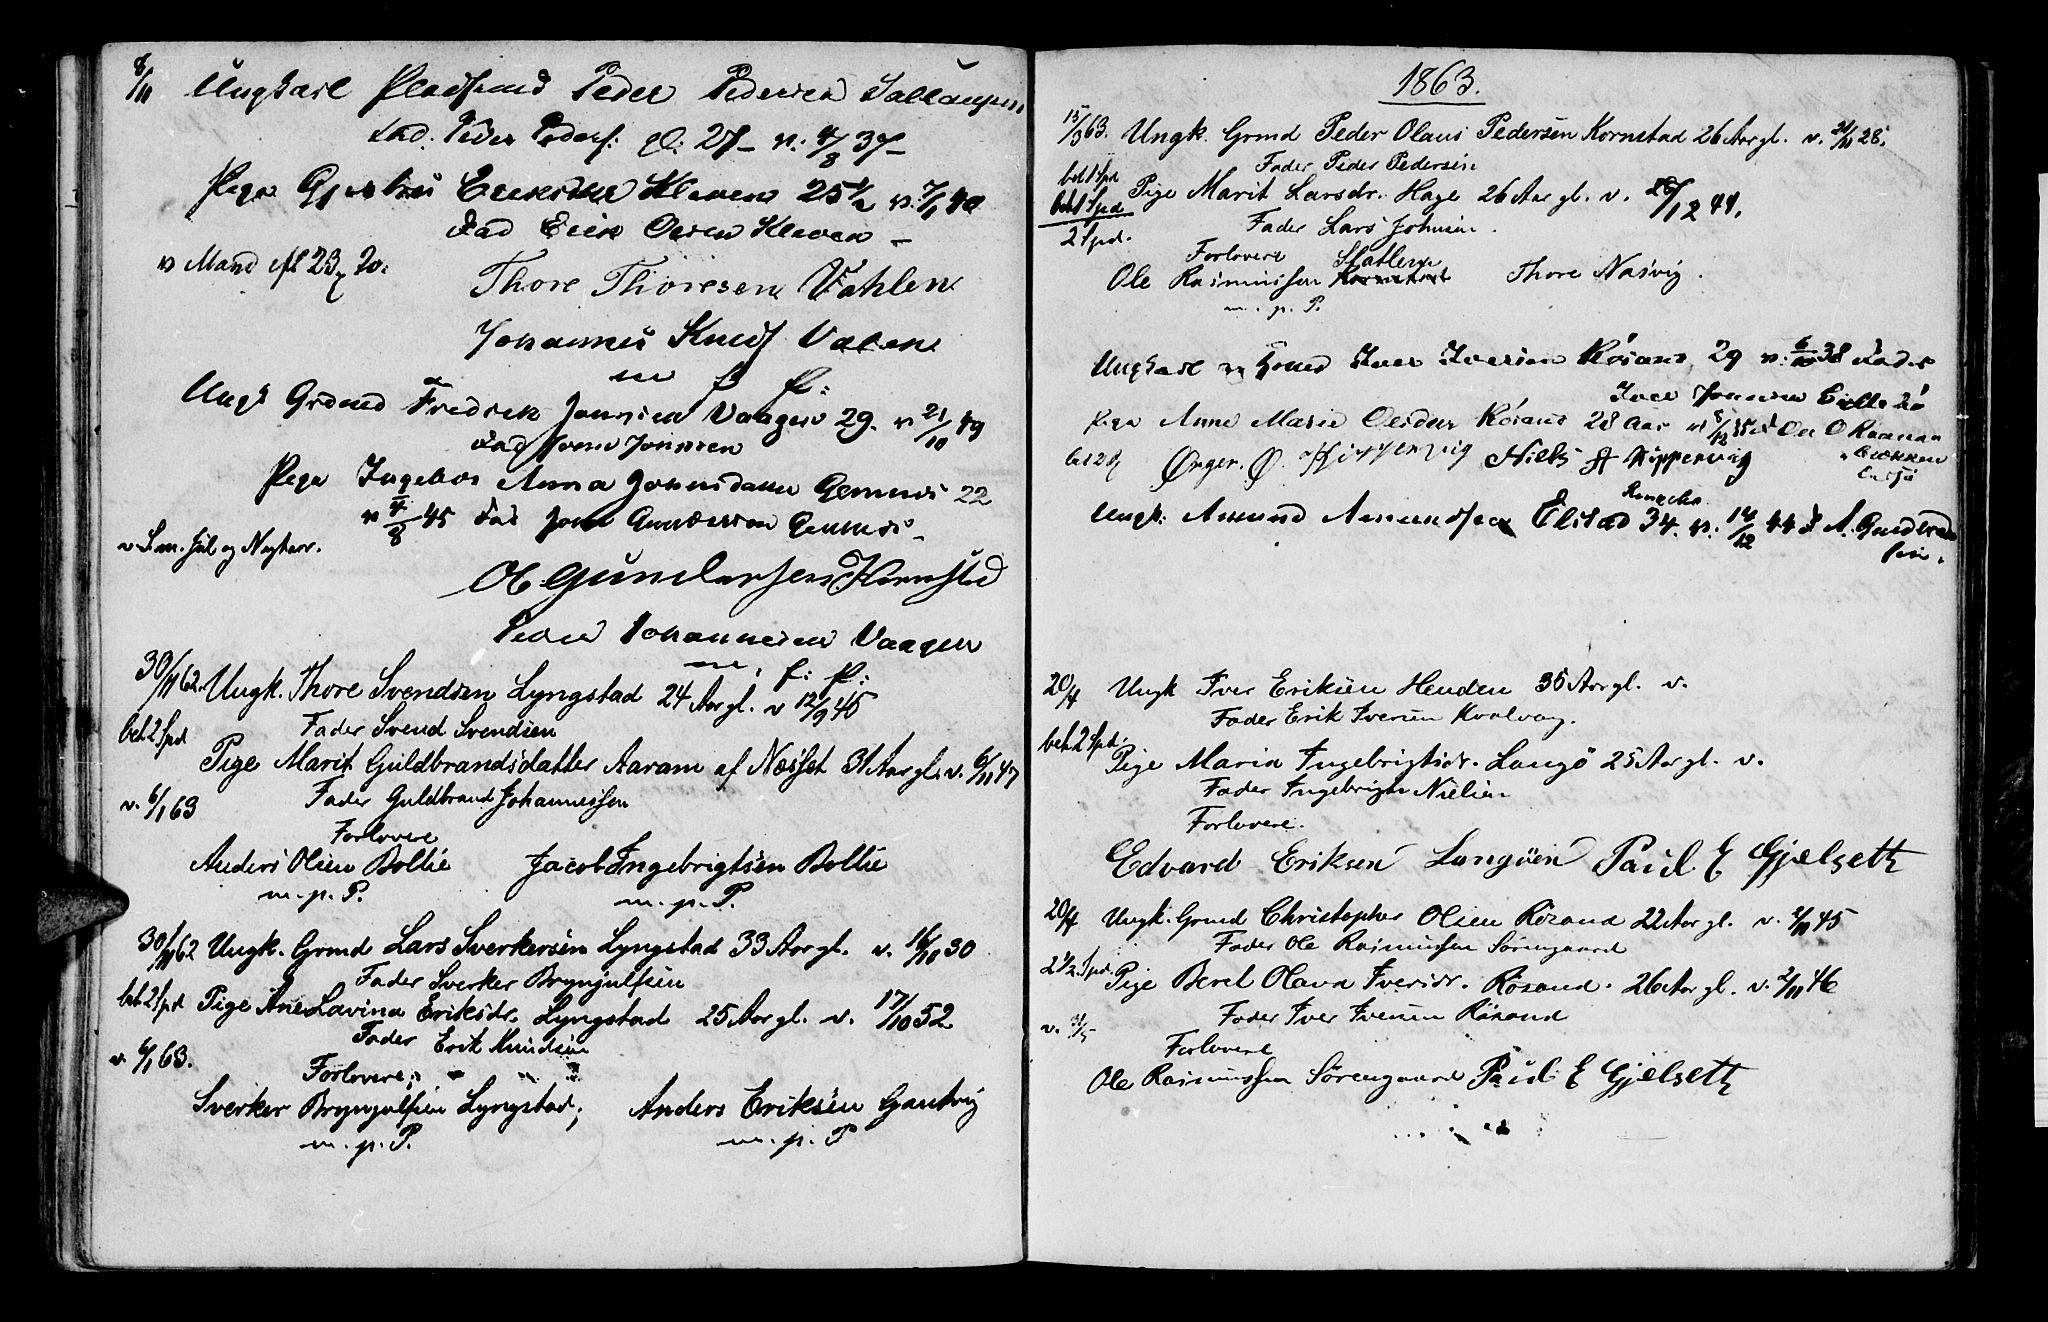 8/11 Ungkarl Pladsmd Peder Pedersen
Fad: Peder Peders: gl: 27 – v. 4/8 37 –
Pige Eriksdtr Kleven 25 1/2 v. 7/1 40
Fad Erik Olsen Kleven –
v Mand eft 23
Thore Thoresen Vahlen
Johannes Knuds Valen
m f P:
Ungk Grdmd Fredrik Jonssen Vaagen 29. v 21/10 49
Fad Jonssen
Pige Ingebor Anna Johnsdatter Gemnes 22
v 4/8 45 Fad John Gundersen Gemnes –
v. S. m. Jul og Nytaar.
Ole Gundersen Kornstad
Peder Johannesen Vaagen
m. f: P:
30/11 62. Ungk. Thore Svendsen Lyngstad 24 Aar gl. v 12/9 45
bet. 2 Spd Fader Svend Svendsen
Pige Marit Guldbrandsdatter Aaram af Nesset 31 Aar gl. v. 6/11 47
v. 6/1 63 Fader Guldbrand Johannessen
Forlovere
Anders Olsen Bollie Jacob Ingebrigtsen Bollie
m. p. P. m. p. P.
30/11 62 Ungk. Grmd Lars Sverkersen Lyngstad 33 Aar gl. v. 16/10 30
Fader Sverker Brynjulfsen
bet. 2 Spd Pige Ane Lavina Eriksdr. Lyngstad 25 Aar gl. v. 17/10 52
Fader Erik Knudsen
v. 6/1 63. Forlovere;
Sverker Brynjulfsen Lyngstad; Anders Eriksen Gautvig
m. p. P. m. p. P
1863.
15/3 63. Ungk. Grmd Peder Olaus Pedersen Kornstad 26 Aar gl. v. 21/11 28.
Fader Peder Pedersen
bet 1 Spd
Pige Marit Larsdr. Hage 26 Aar gl. v. 28/12 44.
bet 1 Spd
Fader Lars Johnsen.
2 Spd.
Forlovere Statlem
Ole Rasmussen Thore Nasvig.
m. p. P.
Ungkarl Grmd Iver Iversen Rösand 29 v. 38 Fader
Iver
Pige Anne Marie Olsdtr Rösand 28 Aar
bet 2 Niels Kippervig
Ungk. Amund Amundsen Elstad 34. v. 14/12 44 F A. Guldbrand
sen.
20/4 Ungk Iver Eriksen Henden 35 Aar gl. v.
Fader Erik Iversen Kvalvaag.
bet. 2 Spd.
Pige Maria Ingebrigtsdr. Langö 25 Aar gl. v.
Fader Ingebrigt Nielsen
Forlovere.
Edvard Eriksen Langöen Paul E Gjelseth
20/4 Ungk. Grmd Christopher Olsen Rösand 22 Aar gl. v. 2/11 45
Fader Ole Rasmussen Sörengaard
2 1/2 Spd. Pige Beret Olava Iversdr. Rösand. 26 Aar gl. v. 2/11 46
Fader Iver Iversen Rösand
v. 31/5
Forlovere
Ole Rasmussen Sörengaard Paul E Gjelseth